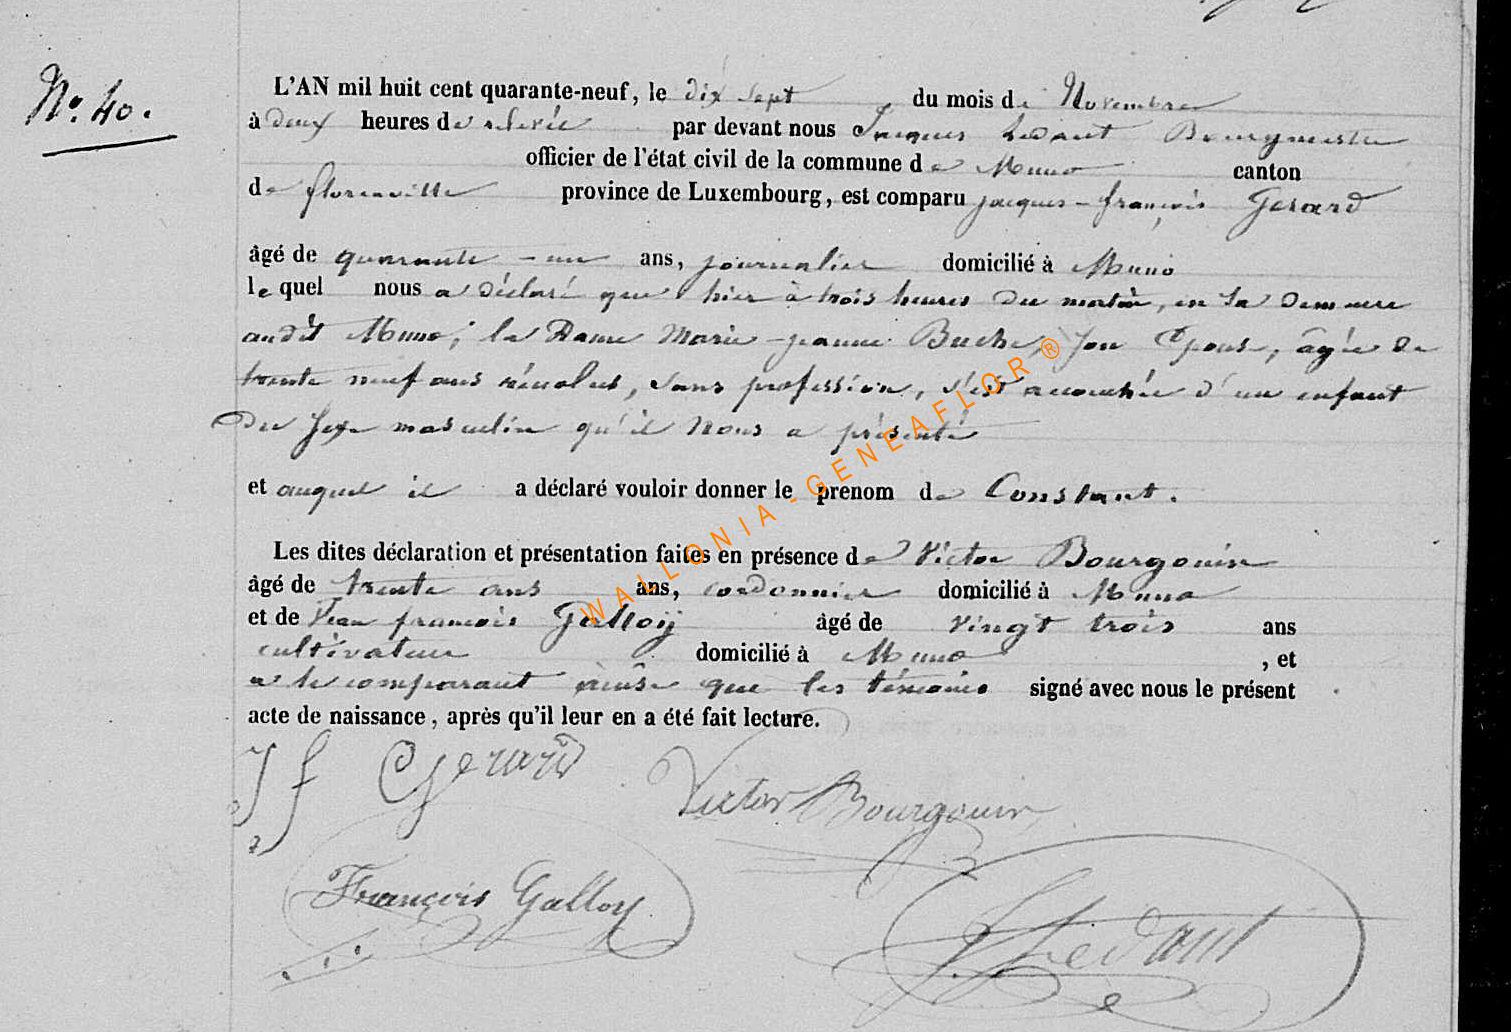 N° 40.
L'AN mil huit cent quarante-neuf, le dix sept du mois de Novembre
à deux heures de relevée par devant nous Jacques Ledant Bourgmestre
officier de l'état civil de la commune de Muno canton
de florenville province de Luxembourg, est comparu jacques-françois Gerard
âgé de quarante-un ans, journalier domicilié à Muno
le quel nous a déclaré que hier à trois heures du matin, en sa demeure
audit Muno, la Dame Marie-jeanne Buche, son Epouse, âgée de
trente neuf ans révolus, sans profession, s'est accouchée d'un enfant
du sexe masculin qu'il nous a présenté
et auquel il a déclaré vouloir donner le prenom de Constant.
Les dites déclaration et présentation faites en présence de Victor Bourgouin
âgé de trente ans ans, cordonnier domicilié à Muno
et de Jean françois Galloy âgé de vingt trois ans
cultivateur domicilié à Muno , et
a le comparant ainsi que les témoins signé avec nous le présent
acte de naissance, après qu'il leur en a été fait lecture.
J f Gerard
Victor Bourgouin
François Galloy
J Ledant
WALLONIA-GENEAFLOR®